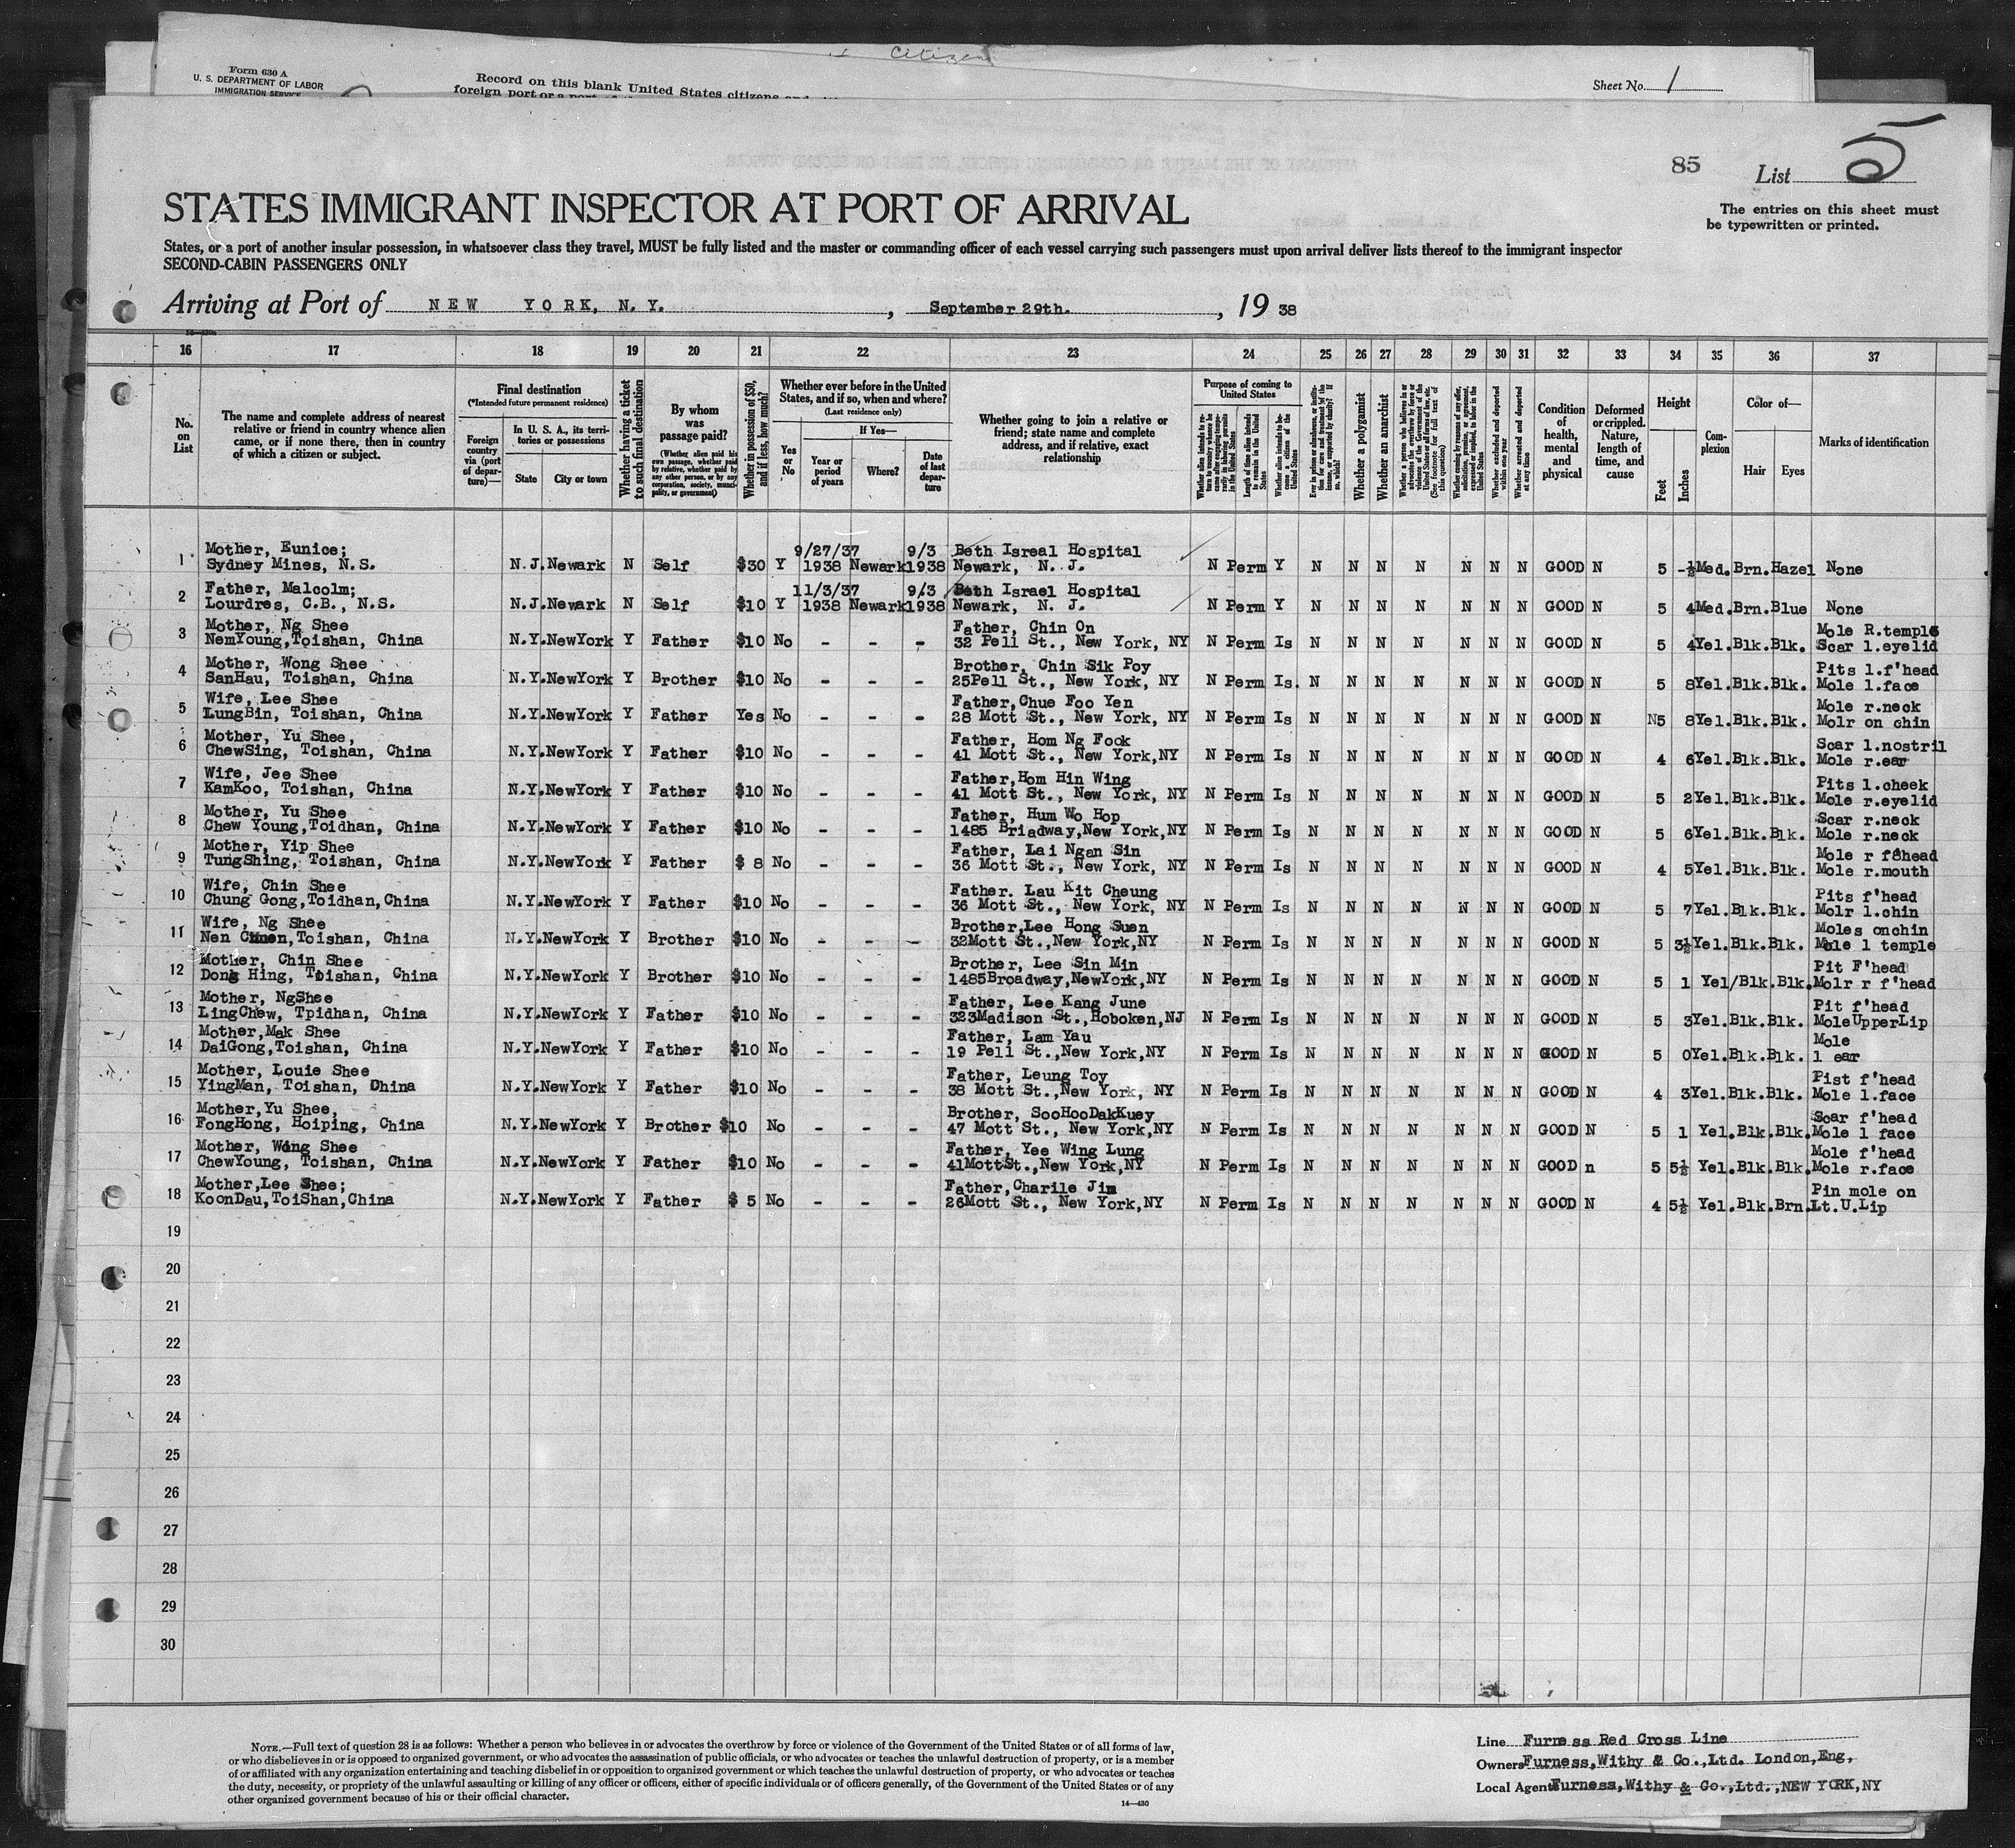 Citizen
Form 630 A
U. S. DEPARTMENT OF LABOR
IMMIGRATION SERVICE
Record on this blank United States citizens and
foreign port or a port of
Sheet No. 1
85
List 5
The entries on this sheet must
be typewritten or printed.
STATES IMMIGRANT INSPECTOR AT PORT OF ARRIVAL
States, or a port of another insular possession, in whatsoever class they travel, MUST be fully listed and the master or commanding officer of each vessel carrying such passengers must upon arrival deliver lists thereof to the immigrant inspector
SECOND-CABIN PASSENGERS ONLY
Arriving at Port of NEW YORK, N.Y. , September 29th. , 19 38
16 17 18 19 20 21 22 23 24 25 26 27 28 29 30 31 32 33 34 35 36 37
No. on List
The name and complete address of nearest
relative or friend in country whence alien
came, or if none there, then in country
of which a citizen or subject.
Final destination
(*Intended future permanent residence)
Foreign country via (port of departure)—
In U. S. A., its territories or possessions
State
City or town
Whether having a ticket to such final destination
By whom was passage paid?
(Whether alien paid his own passage, whether paid by relative, whether paid by any other person, or by any corporation, society, municipality, or government)
Whether in possession of $50, and if less, how much?
Whether ever before in the United States, and if so, when and where?
(Last residence only)
Yes or No
If Yes—
Year or period of years
Where?
Date of last departure
Whether going to join a relative or
friend; state name and complete
address, and if relative, exact
relationship
Purpose of coming to United States
Whether a polygamist
Whether an anarchist
Whether excluded and deported within one year
Whether arrested and deported at any time
Condition of health, mental and physical
Deformed or crippled. Nature, length of time, and cause
Height
Feet
Inches
Complexion
Color of—
Hair
Eyes
Marks of identification
9/27/37 9/3
1 Mother, Eunice; Beth Isreal Hospital
Sydney Mines, N.S. N.J. Newark N Self $30 Y 1938 Newark 1938 Newark, N. J. N Perm Y N N N N N N N GOOD N 5 -½ Med. Brn. Hazel None
11/3/37 9/3
2 Father, Malcolm; Beth Israel Hospital
Lourdres, C.B., N.S. N.J. Newark N Self $10 Y 1938 Newark 1938 Newark, N. J. N Perm Y N N N N N N N GOOD N 5 4 Med. Brn. Blue None
3 Mother, Ng Shee Father, Chin On Mole R.temple
NemYoung,Toishan, China N.Y. NewYork Y Father $10 No - - - 32 Pell St., New York, NY N Perm Is N N N N N N N GOOD N 5 4 Yel. Blk. Blk. Scar l.eyelid
4 Mother, Wong Shee Brother, Chin Sik Poy Pits l.f'head
SanHau, Toishan, China N.Y. NewYork Y Brother $10 No - - - 25Pell St., New York, NY N Perm Is. N N N N N N N GOOD N 5 8 Yel. Blk. Blk. Mole l.face
5 Wife, Lee Shee Father, Chue Foo Yen Mole r.neck
LungBin, Toishan, China N.Y. NewYork Y Father Yes No - - - 28 Mott St., New York, NY N Perm Is N N N N N N N GOOD N N5 8 Yel. Blk. Blk. Molr on chin
6 Mother, Yu Shee, Father, Hom Ng Fook Scar l.nostril
ChewSing, Toishan, China N.Y. NewYork Y Father $10 No - - - 41 Mott St., New York,NY N Perm Is N N N N N N N GOOD N 4 6 Yel. Blk. Blk. Mole r.ear
7 Wife, Jee Shee Father, Hom Hin Wing Pits l.cheek
KamKoo, Toishan, China N.Y. NewYork Y Father $10 No - - - 41 Mott St., New York, NY N Perm Is N N N N N N N GOOD N 5 2 Yel. Blk. Blk. Mole r.eyelid
8 Mother, Yu Shee Father, Hum Wo Hop Scar r.neck
Chew Young,Toidhan, China N.Y. NewYork Y Father $10 No - - - 1485 Briadway,New York,NY N Perm Is N N N N N N N GOOD N 5 6 Yel. Blk. Blk. Mole r.neck
9 Mother, Yip Shee Father, Lai Ngan Sin Mole r f8head
TungShing, Toishan, China N.Y. NewYork Y Father $ 8 No - - - 36 Mott St., New York, NY N Perm Is N N N N N N N GOOD N 4 5 Yel. Blk. Blk. Mole r.mouth
10 Wife, Chin Shee Father. Lau Kit Cheung Pits f'head
Chung Gong,Toidhan,China N.Y. NewYork Y Father $10 No - - - 36 Mott St., New York, NY N Perm Is N N N N N N N GOOD N 5 7 Yel. Blk. Blk. Molr l.chin
11 Wife, Ng Shee Brother,Lee Hong Suen Moles onchin
Nen ,Toishan, China N.Y. NewYork Y Brother $10 No - - - 32Mott St.,New York,NY N Perm Is N N N N N N N GOOD N 5 3½ Yel. Blk. Blk. Mole l temple
12 Mother, Chin Shee Brother, Lee Sin Min Pit F'head
Dong Hing, Toishan, China N.Y. NewYork Y Brother $10 No - - - 1485Broadway,NewYork,NY N Perm Is N N N N N N N GOOD N 5 1 Yel/Blk. Blk. Molr r f'head
13 Mother, NgShee Father, Lee Kang June Pit f'head
LingChew, Tpidhan, China N.Y. NewYork Y Father $10 No - - - 323Madison St.,Hoboken,NJ N Perm Is N N N N N N N GOOD N 5 3 Yel. Blk. Blk. MoleUpperLip
14 Mother,Mak Shee Father, Lam Yau Mole
DaiGong,Toishan, China N.Y. NewYork Y Father $10 No - - - 19 Pell St.,New York,NY N Perm Is N N N N N N N GOOD N 5 0 Yel. Blk. Blk. l ear
15 Mother, Louie Shee Father, Leung Toy Pist f'head
YingMan, Toishan, China N.Y. NewYork Y Father $10 No - - - 38 Mott St.,New York, NY N Perm Is N N N N N N N GOOD N 4 3 Yel. Blk. Blk. Mole l.face
16 Mother,Yu Shee, Brother, SooHooDakKuey Scar f'head
FongHong, Hoiping, China N.Y. NewYork Y Brother $10 No - - - 47 Mott St., New York,NY N Perm Is N N N N N N N GOOD N 5 1 Yel. Blk. Blk. Mole l face
17 Mother, Wong Shee Father, Yee Wing Lung Mole f'head
ChewYoung, Toishan, China N.Y. NewYork Y Father $10 No - - - 41MottSt.,New York,NY N Perm Is N N N N N N N GOOD n 5 5½ Yel. Blk. Blk. Mole r.face
18 Mother,Lee Shee; Father,Charile Jim Pin mole on
KoonDau,ToiShan,China N.Y. NewYork Y Father $ 5 No - - - 26Mott St., New York,NY N Perm Is N N N N N N N GOOD N 4 5½ Yel. Blk. Brn. Lt.U.Lip
19
20
21
22
23
24
25
26
27
28
29
30
NOTE.—Full text of question 28 is as follows: Whether a person who believes in or advocates the overthrow by force or violence of the Government of the United States or of all forms of law,
or who disbelieves in or is opposed to organized government, or who advocates the assassination of public officials, or who advocates or teaches the unlawful destruction of property, or is a member
of or affiliated with any organization entertaining and teaching disbelief in or opposition to organized government or which teaches the unlawful destruction of property, or who advocates or teaches
the duty, necessity, or propriety of the unlawful assaulting or killing of any officer or officers, either of specific individuals or of officers generally, of the Government of the United States or of any
other organized government because of his or their official character.
14—430
Line Furness Red Cross Line
Owners Furness,Withy & Co.,Ltd. London,Eng,
Local Agents Furness,Withy & Co.,Ltd.,NEW YORK,NY